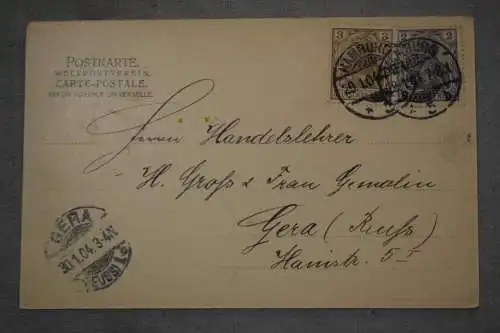 POSTKARTE.
WELTPOSTVEREIN.
CARTE-POSTALE.
UNION POSTALE UNIVERSELLE.
3 2
MARBURG
29.1.04
Herrn Handelslehrer
H. Groß & Frau Gemalin
Gera (Reuss)
Hainstr. 5 I
GERA
30.1.04. 3-4N.
(REUSS) 1